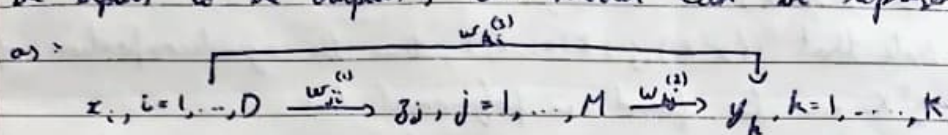 w_{ki}^{(3)}
as:
x_i, i=1,...,D \xrightarrow{w_{ji}^{(1)}} z_j, j=1,...,M \xrightarrow{w_{kj}^{(2)}} y_k, k=1,....,K